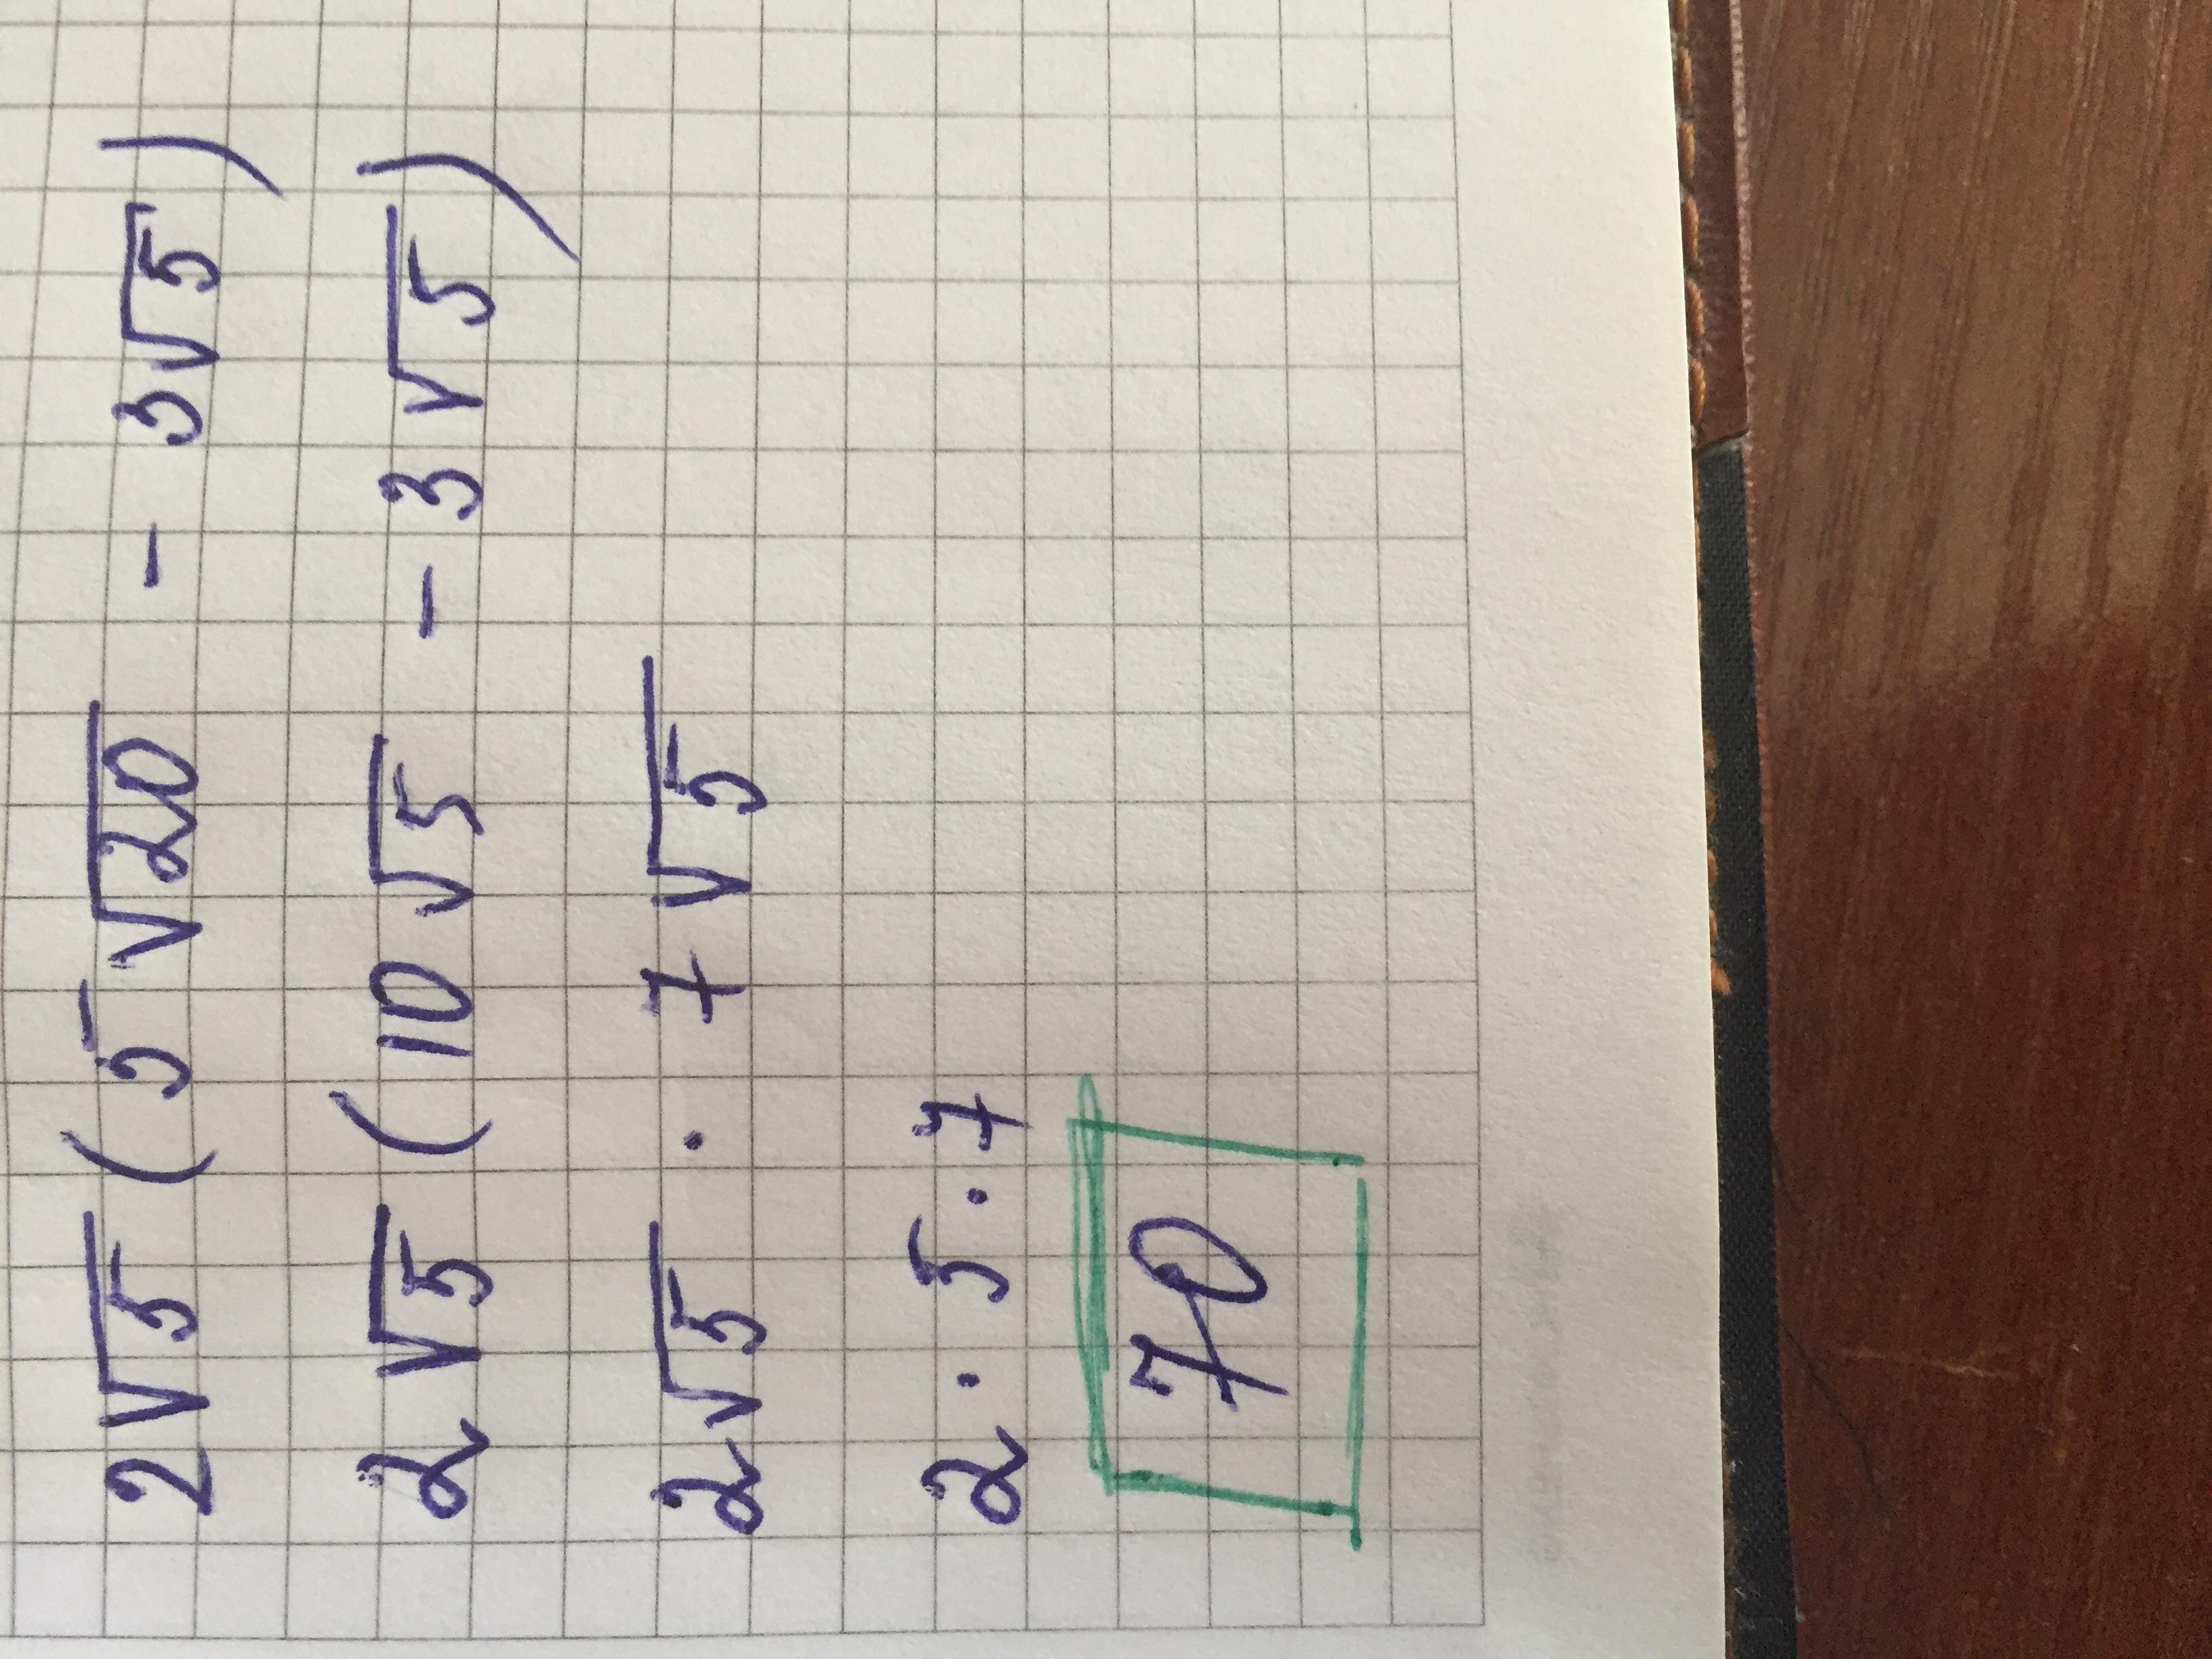 2√5 (5√20 - 3√5)
2√5 (10√5 - 3√5)
2√5 · 7√5
2 · 5 · 7
70